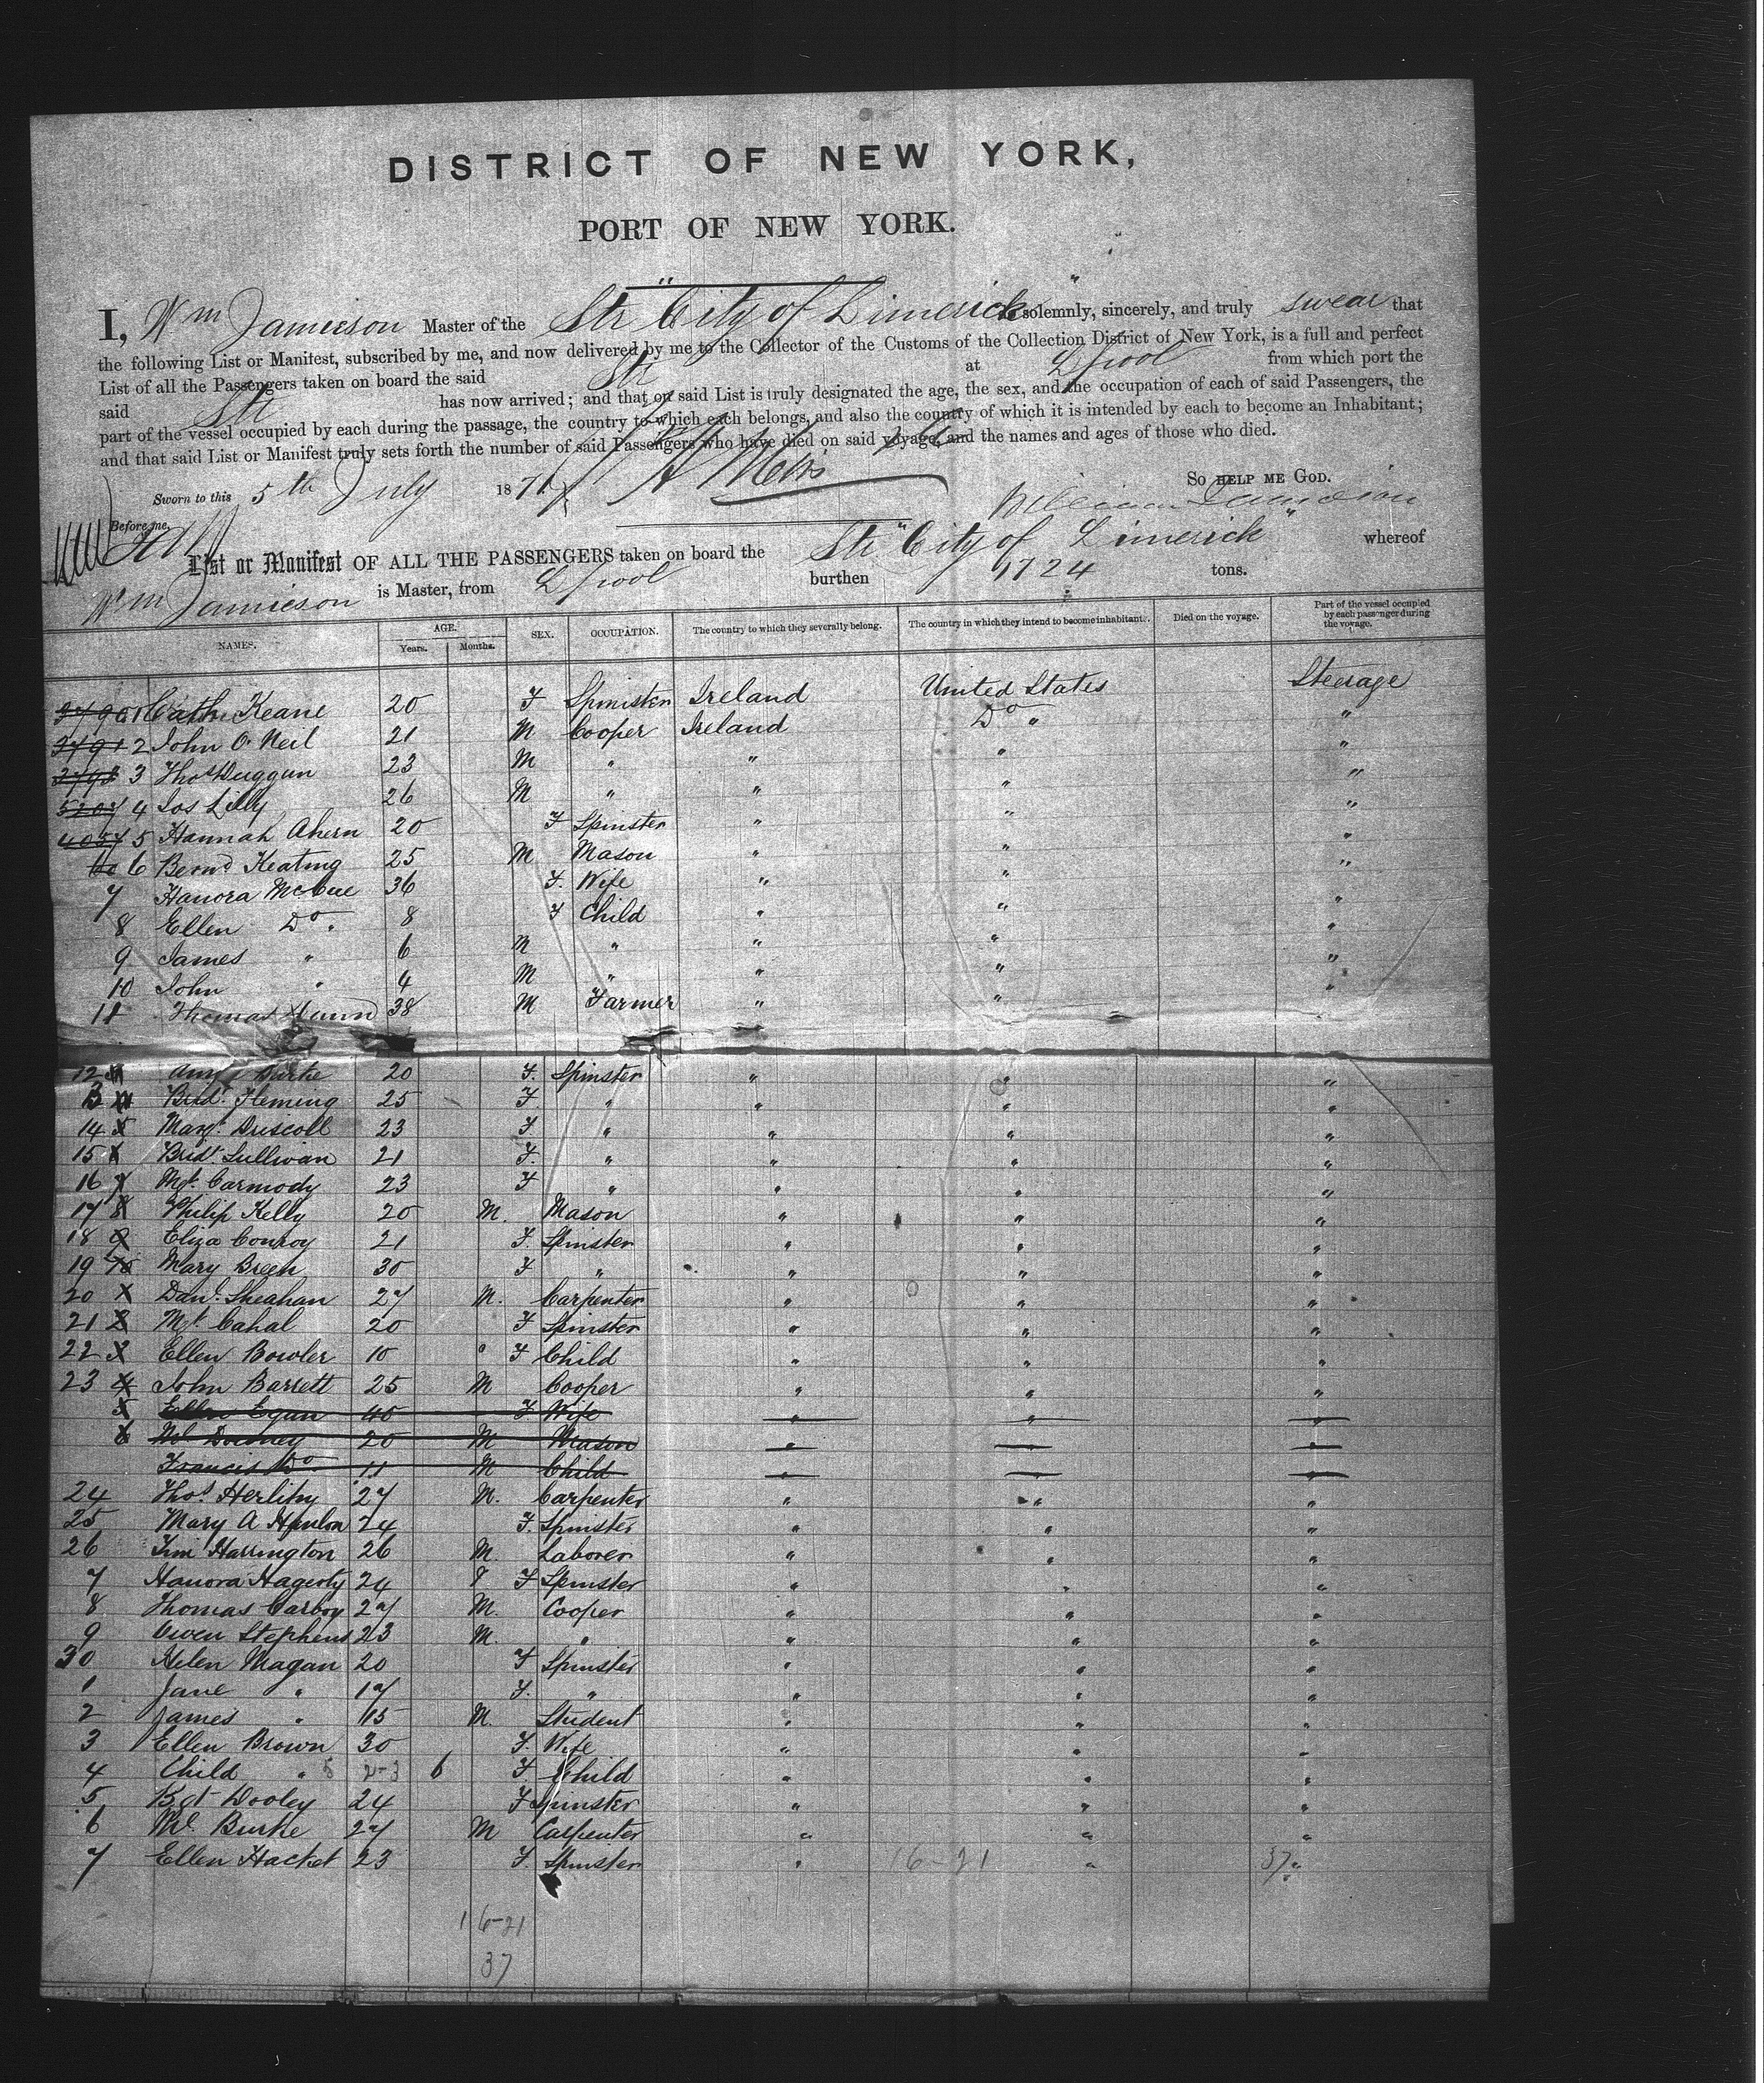 DISTRICT OF NEW YORK,
PORT OF NEW YORK.
I, Wm Jamieson Master of the Str "City of Limerick" do solemnly, sincerely, and truly swear that
the following List or Manifest, subscribed by me, and now delivered by me to the Collector of the Customs of the Collection District of New York, is a full and perfect
List of all the Passengers taken on board the said Str at L'pool from which port the
said Str has now arrived; and that on said List is truly designated the age, the sex, and the occupation of each of said Passengers, the
part of the vessel occupied by each during the passage, the country to which each belongs, and also the country of which it is intended by each to become an Inhabitant;
and that said List or Manifest truly sets forth the number of said Passengers who have died on said voyage, and the names and ages of those who died.
So HELP ME GOD.
Sworn to this 5th July 1871
William Jamieson
Before me,
List or Manifest OF ALL THE PASSENGERS taken on board the Str "City of Limerick" whereof
Wm Jamieson is Master, from L'pool burthen 1724 tons.
NAMES. AGE. Years. Months. SEX. OCCUPATION. The country to which they severally belong. The country in which they intend to become inhabitants. Died on the voyage. Part of the vessel occupied by each passenger during the voyage.
1 Cath Keane 20 F Spinster Ireland United States Steerage
2 John O'Neil 21 M Cooper Ireland Do " "
3 Thos Duggun 23 M " " " "
4 Jos Lilly 26 M " " " "
5 Hannah Ahern 20 F Spinster " " "
6 Bernd Keating 25 M Mason " " "
7 Hanora McCue 36 F. Wife " " "
8 Ellen Do. 8 F Child " " "
9 James " 6 M " " " "
10 John " 4 M " " " "
11 Thomas 38 M Farmer " " "
12 Burke 20 F. Spinster " " "
13 Brid. Fleming 25 F " " " "
14 Margt. Driscoll 23 F. " " " "
15 Bridt. Sullivan 21 F. " " " "
16 Mgt. Carmody 23 F " " " "
17 Philip Kelly 20 M. Mason " " "
18 Eliza Conroy 21 F. Spinster " " "
19 Mary Breen 30 F " " " "
20 Danl. Sheahan 27 M. Carpenter " " "
21 Mgt. Cahal 20 F Spinster " " "
22 Ellen Bowler 10 F Child " " "
23 John Barrett 25 M Cooper " " "
Ellen Egan 40 F Wife " " "
Ml Downey 20 M Mason " " "
Francis Do 11 M Child " " "
24 Thos. Herlihy 27 M. Carpenter " " "
25 Mary A Hanlon 24 F. Spinster " " "
26 Tim Harrington 26 M. Laborer " " "
7 Hanora Hagerty 24 F Spinster " " "
8 Thomas Carboy 27 M. Cooper " " "
9 Owen Stephens 23 M. " " " "
30 Helen Magan 20 F Spinster " " "
1 Jane " 17 F. " " " "
2 James " 15 M. Student " " "
3 Ellen Brown 30 F. Wife " " "
4 Child " 6 F Child " " "
5 Bgt Dooley 24 F Spinster " " "
6 Ml. Burke 27 M Carpenter " " "
7 Ellen Hacket 23 F. Spinster " 16-21 " 37 "
16-21
37